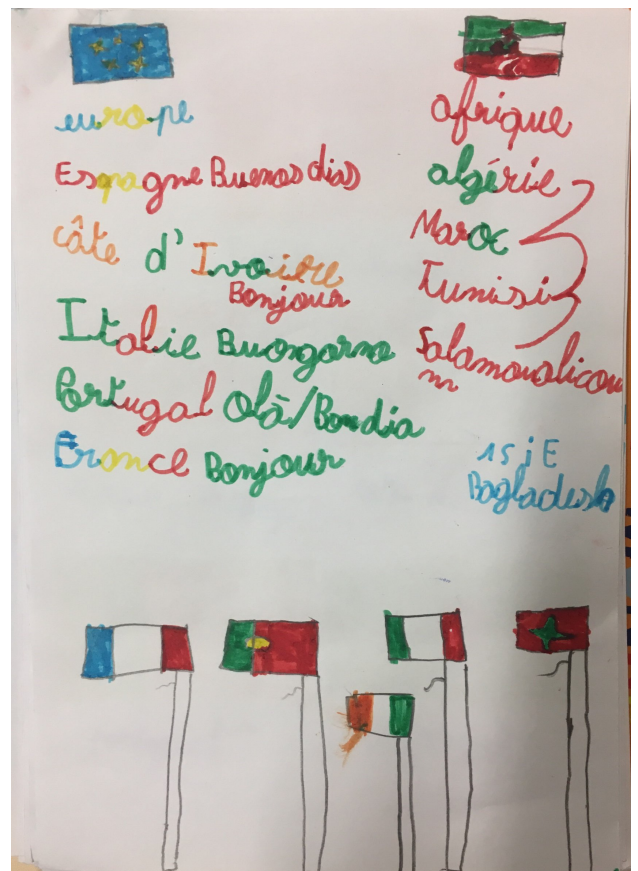 europe
Espagne Buenos dias
côte d'Ivoire
Bonjour
Italie Buongorno
Portugal Olã/Bondia
France Bonjour
afrique
algérie
Maroc
Tunisi
Salamoualicou
m
asiE
Bagladesh